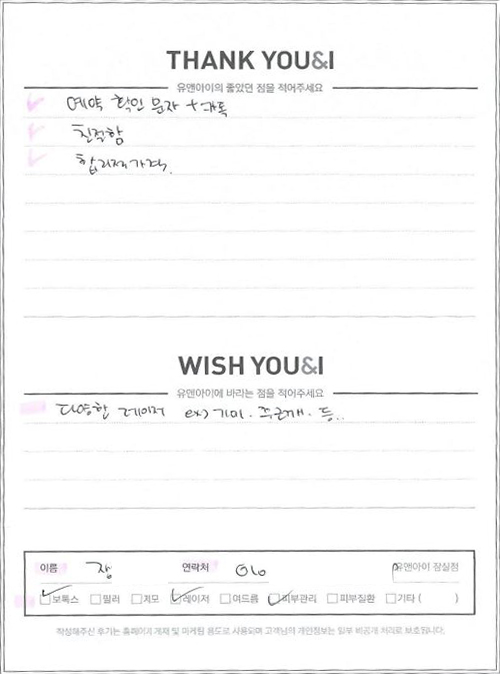 THANK YOU&I
유앤아이의 좋았던 점을 적어주세요
예약 확인 문자 + 카톡
친절함
합리적 가격.
WISH YOU&I
유앤아이에 바라는 점을 적어주세요
다양한 레이저 ex) 기미. 주근깨. 등..
이름 장 연락처 010 유앤아이 잠실점
보톡스 필러 제모 레이저 여드름 피부관리 피부질환 기타 ( )
작성해주신 후기는 홈페이지 게재 및 마케팅 용도로 사용되며 고객님의 개인정보는 일부 비공개 처리로 보호됩니다.